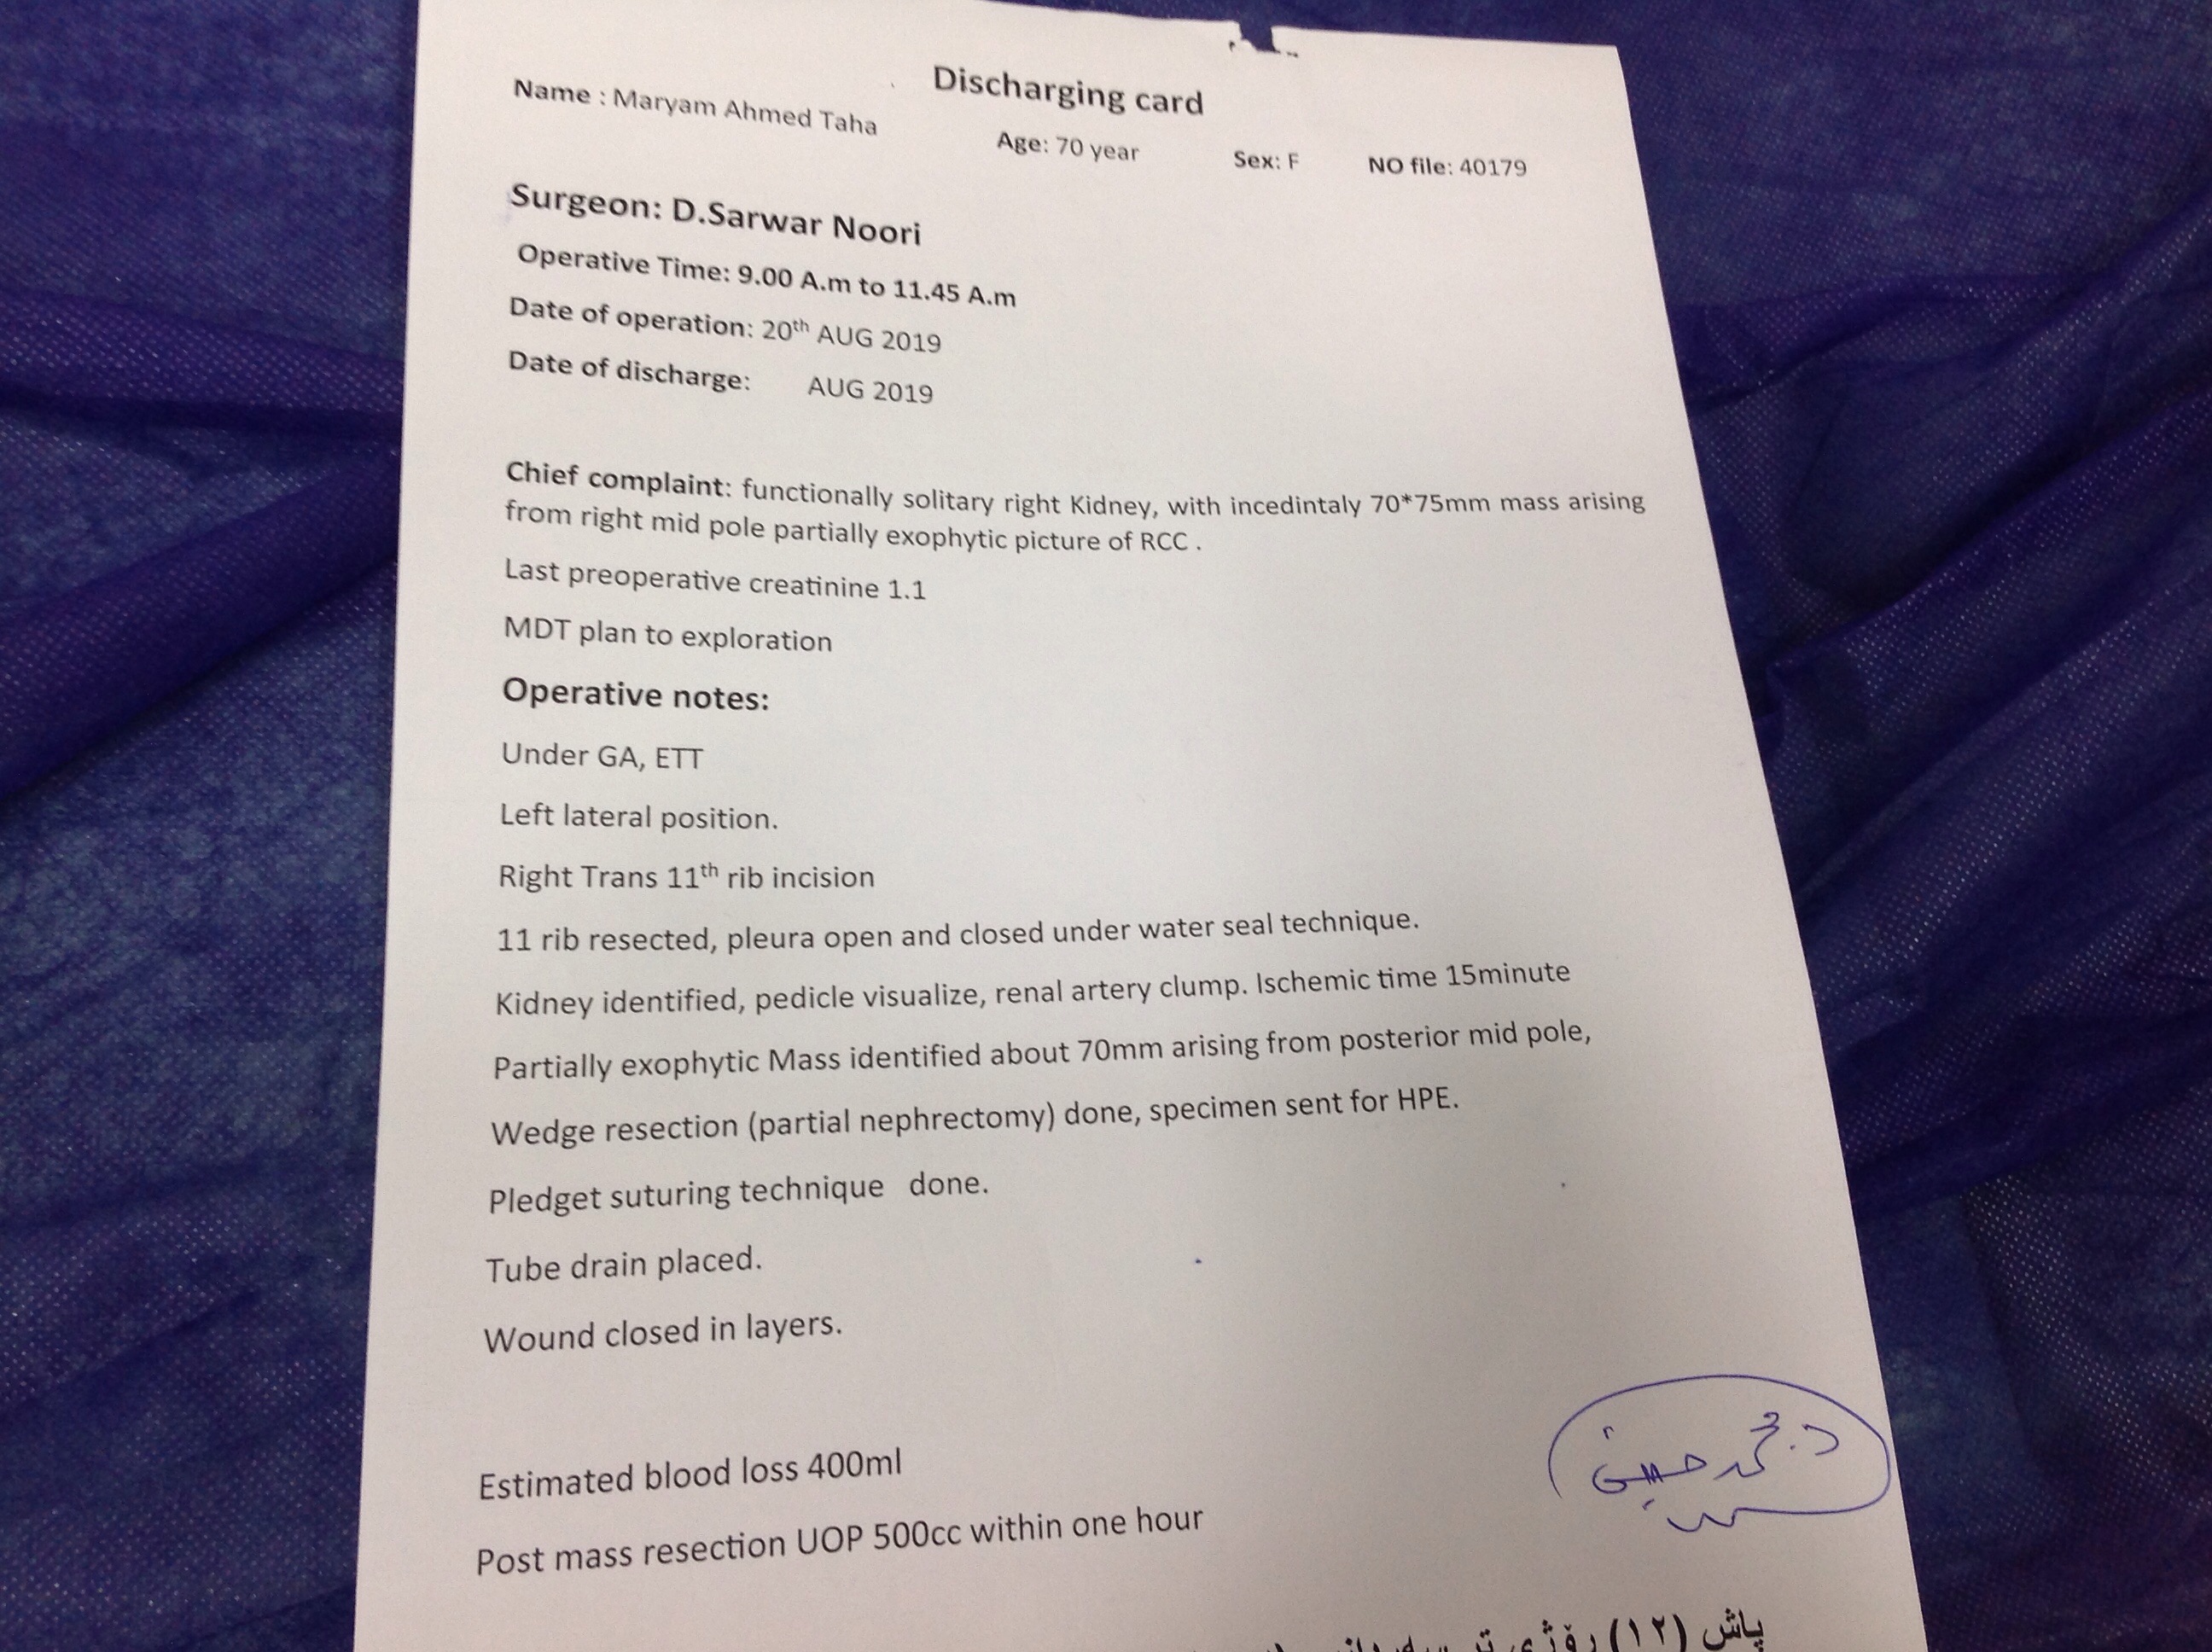 Discharging card
Name : Maryam Ahmed Taha Age: 70 year Sex: F NO file: 40179
Surgeon: D.Sarwar Noori
Operative Time: 9.00 A.m to 11.45 A.m
Date of operation: 20th AUG 2019
Date of discharge: AUG 2019
Chief complaint: functionally solitary right Kidney, with incedintaly 70*75mm mass arising
from right mid pole partially exophytic picture of RCC .
Last preoperative creatinine 1.1
MDT plan to exploration
Operative notes:
Under GA, ETT
Left lateral position.
Right Trans 11th rib incision
11 rib resected, pleura open and closed under water seal technique.
Kidney identified, pedicle visualize, renal artery clump. Ischemic time 15minute
Partially exophytic Mass identified about 70mm arising from posterior mid pole,
Wedge resection (partial nephrectomy) done, specimen sent for HPE.
Pledget suturing technique done.
Tube drain placed.
Wound closed in layers.
د. محمد حسین
Estimated blood loss 400ml
Post mass resection UOP 500cc within one hour
پاش (١٢) رۆژی تر